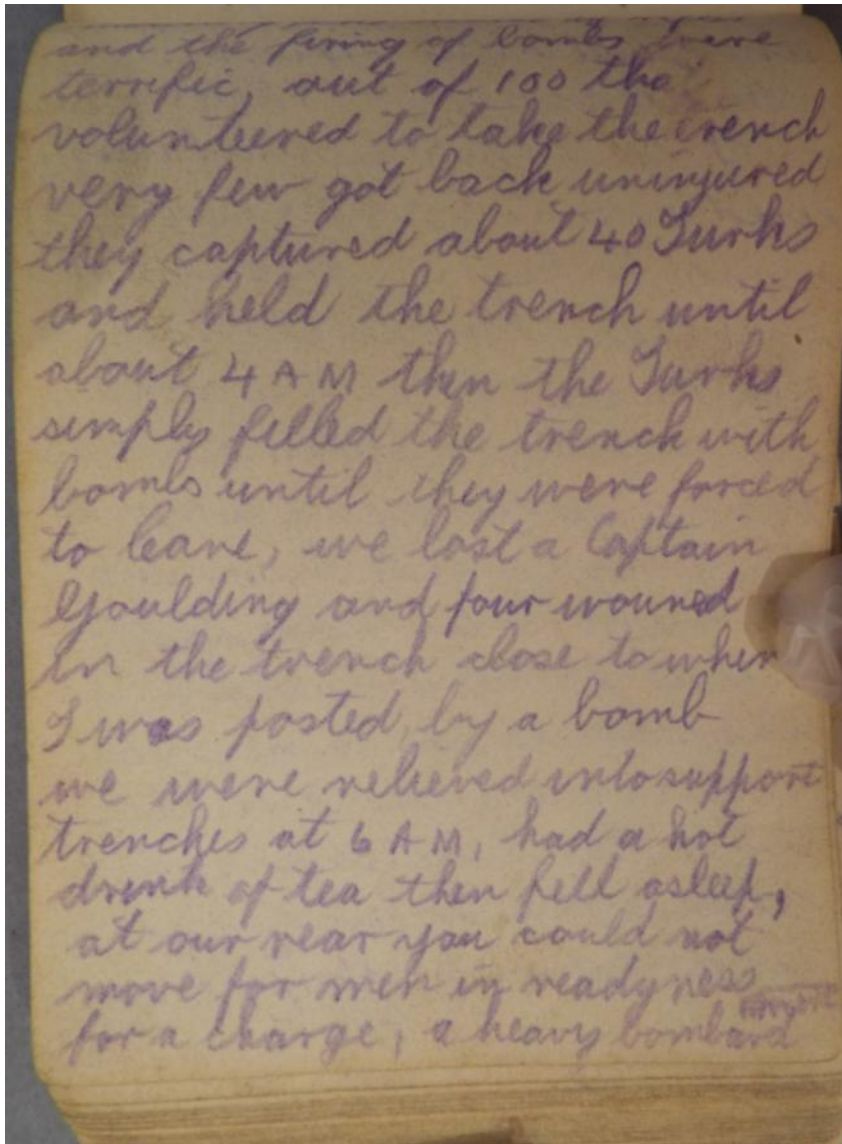 and the firing of bombs were
terrific, out of 100 tha
volunteered to take the trench
very few got back uninjured
they captured about 40 Turks
and held the trench until
about 4 AM then the Turks
simply filled the trench with
bombs until they were forced
to leave, we lost a Captain
Goulding and four wound
in the trench close to wher
I was posted, by a bomb
we were relieved into support
trenches at 6 AM, had a hot
drink of tea then fell asleep,
at our rear you could not
move for men in readyness
for a charge, a heavy bombard